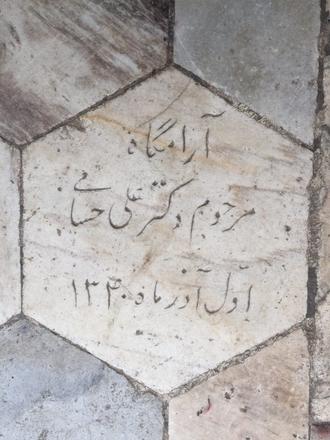 آرامگاه
مرحوم دکتر علی حسامی
اول آذر ماه ۱۳۴۰